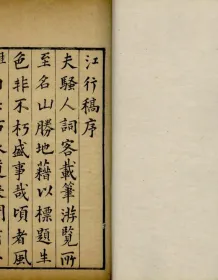 江行稿序
夫騷人詞客載筆游覽所
至名山勝地藉以標題生
色非不朽盛事哉頃者風